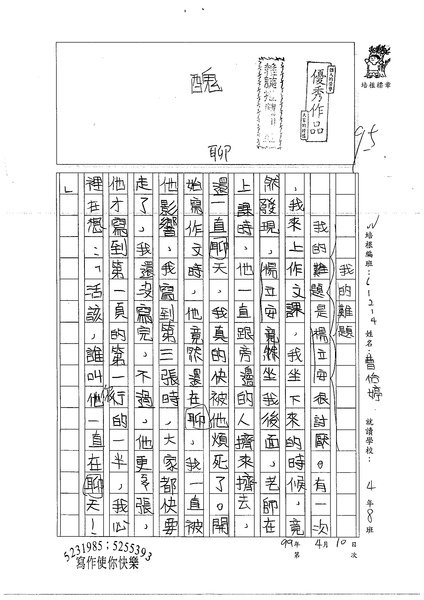 培根標章
優秀作品
95
醜
聊
培根編班：61214 姓名 曾 婷 就讀學校： 4年8班
99年4月10日 第 次
我的難題
我的難題是楊立安很討厭。有一次
，我來上作文課，我坐下來的時候，竟
然發現，楊立安竟然坐我後面，老師在
上課時，他一直跟旁邊的人擠來擠去，
還一直聊天，我真的快被他煩死了。開
始寫作文時，他竟然還在聊，我一直被
他影響，我寫到第三張時，大家都快要
走了，我還沒寫完，不過，他更誇張，
他才寫到第一頁的第一行的一半，我心
裡在想：「活該，誰叫你他一直在聊天！
」
5231985；5255393
寫作使你快樂